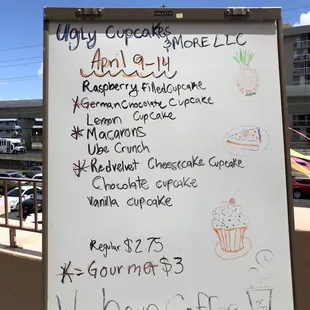 Ugly Cupcakes
& MORE LLC
April 9-14
Raspberry filled Cupcake
*German Chocolate Cupcake
Lemon Cupcake
*Macarons
Ube Crunch
*Redvelvet Cheesecake Cupcake
Chocolate cupcake
Vanilla cupcake
Regular $2.75
*= Gourmet $3